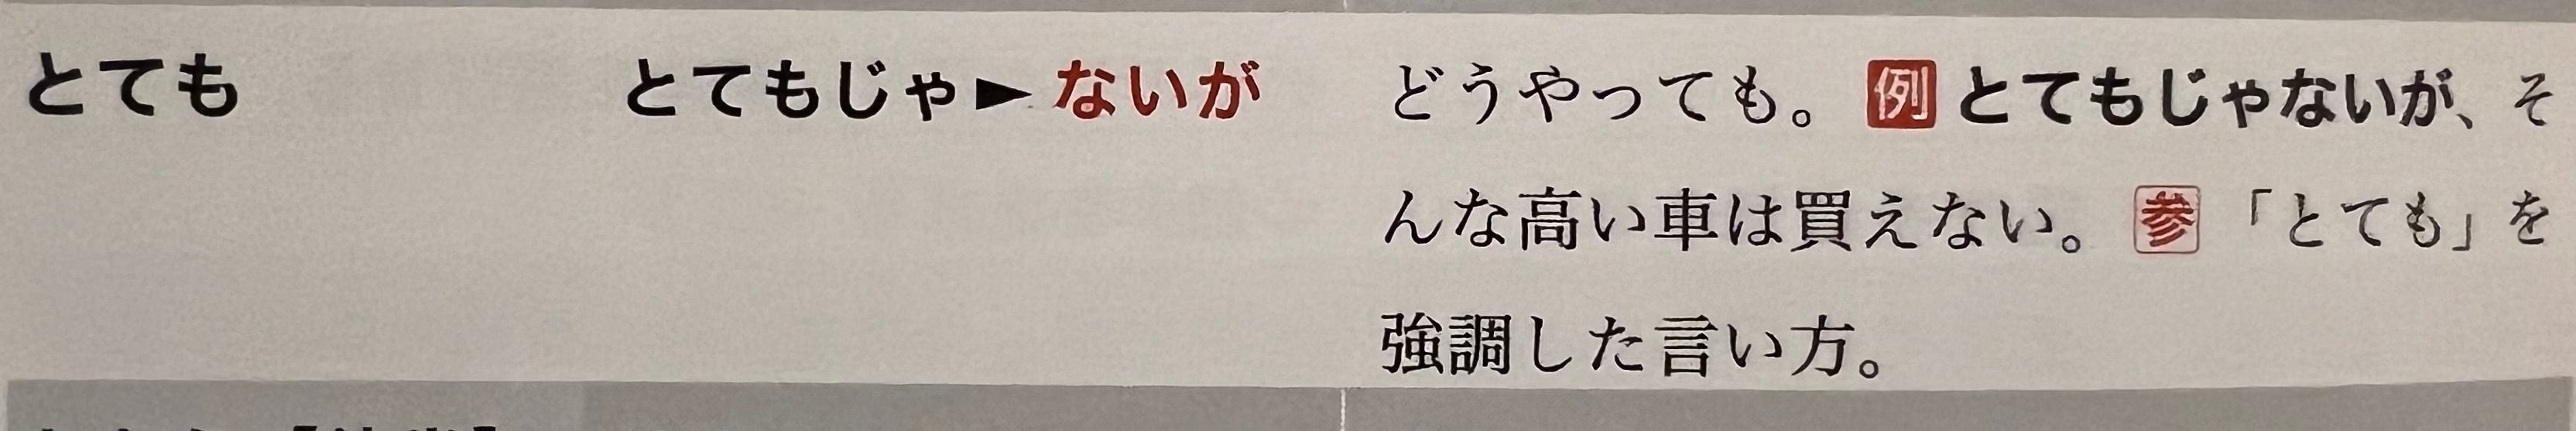 とても　とてもじゃ▶ないが　どうやっても。例とてもじゃないが、そ
んな高い車は買えない。参「とても」を
強調した言い方。